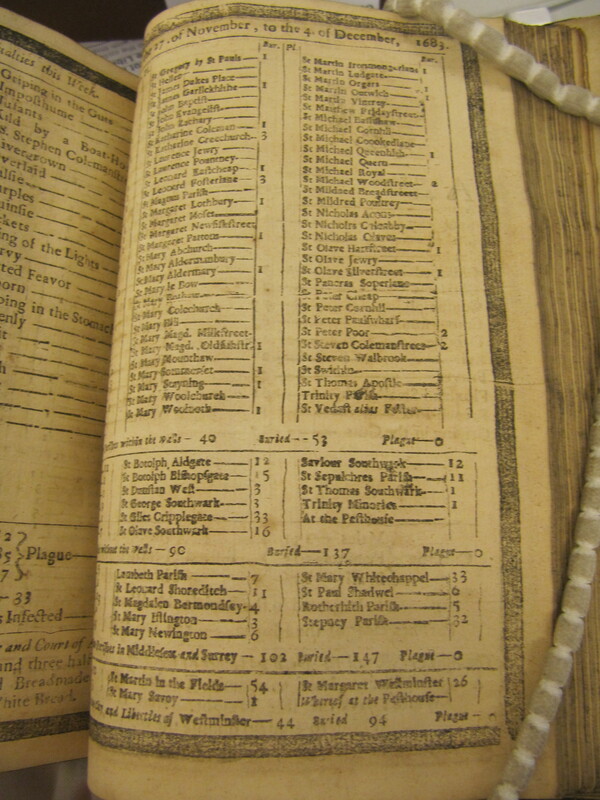 alties this Week.
Griping in the Guts
Imposthume
Infants
Kild by a Boat
S. Stephen Coleman
Livergrown
Overlaid
Purples
Quinsie
Rickets
Rising of the Lights
Scurvy
Spotted Feavor
Stilborn
Stopping in the Stomach
Suddenly
Plague
33
Infected
and three half
White Bread.
27. of November, to the 4. of December, 1683.
Bur. Pl.
St Gregory by St Pauls 1
St Hellen
St James Dukes Place 1
St James Garlickhithe 1
St John Baptist
St John Evangelist
St John Zachary
St Katharine Coleman 1
St Katharine Creechurch 3
St Laurence Jewry
St Laurence Pountney
St Leonard Eastcheap 1
St Leonard Fosterlane 3
St Magnus Parish
St Margaret Lothbury 1
St Margaret Moses
St Margaret Newfishstreet
St Margaret Pattons 1
St Mary Abchurch
St Mary Aldermanbury
St Mary Aldermary 1
St Mary le Bow
St Mary Bothaw
St Mary Colechurch
St Mary Hill
St Mary Magd. Milkstreet
St Mary Magd. Oldfishstr. 1
St Mary Mounthaw
St Mary Sommerset 1
St Mary Stayning 1
St Mary Woolchurch
St Mary Woolnoth 1
Bur.
St Martin Iremongerlane 1
St Martin Ludgate
St Martin Orgars
St Martin Outwich
St Martin Vintrey
St Matthew Fridaystreet
St Michael Bassishaw
St Michael Cornhil
St Michael Crookedlane
St Michael Queenhith 1
St Michael Quern
St Michael Royal
St Michael Woodstreet 2
St Mildred Breadstreet
St Mildred Poultrey
St Nicholas Acons
St Nicholas Coleabby
St Nicholas Olaves
St Olave Hartstreet 1
St Olave Jewry
St Olave Silverstreet 1
St Pancras Soperlane
St Peter Cheap
St Peter Cornhil
St Peter Paulswharf
St Peter Poor 2
St Steven Colemanstreet 2
St Steven Walbrook
St Swithin
St Thomas Apostle
Trinity Parish
St Vedast alias Foster
within the Walls - 40 Buried - 53 Plague - 0
St Botolph Aldgate 12
St Botolph Bishopsgate 15
St Dunstan West 3
St George Southwark 3
St Giles Cripplegate 33
St Olave Southwark 16
Saviour Southwark 12
St Sepulchres Parish 11
St Thomas Southwark 1
Trinity Minories 1
At the Pesthouse
without the Walls - 90 Buried - 137 Plague - 0
Lambeth Parish 7
St Leonard Shoreditch 11
St Magdalen Bermondsey 4
St Mary Islington 3
St Mary Newington 6
St Mary Whitechappel 33
St Paul Shadwel 6
Rotherhith Parish 5
Stepney Parish 32
in Middlesex and Surrey - 102 Buried - 147 Plague - 0
St Martin in the Fields 54
St Mary Savoy 1
St Margaret Westminster 26
Whereof at the Pesthouse
and Liberties of Westminster - 44 Buried 94 Plague -